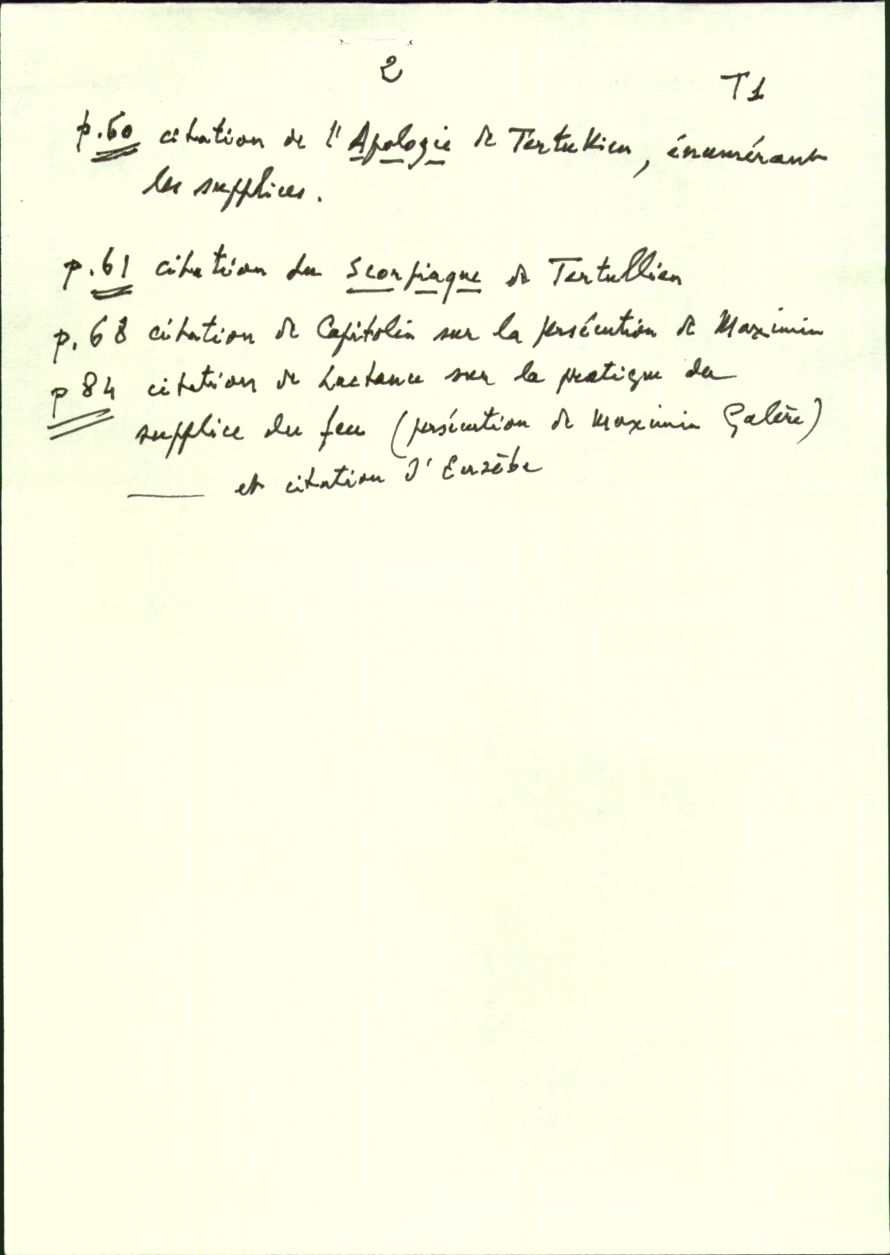 2
T1
p.60 citation de l'Apologie de Tertullien, énumérant
les supplices.
p.61 citation du Scorpiaque de Tertullien
p.68 citation de Capitolin sur la persécution de Maximin
p 84 citation de Lactance sur la pratique du
supplice du feu (persécution de Maximin Galère)
et citation d'Eusèbe